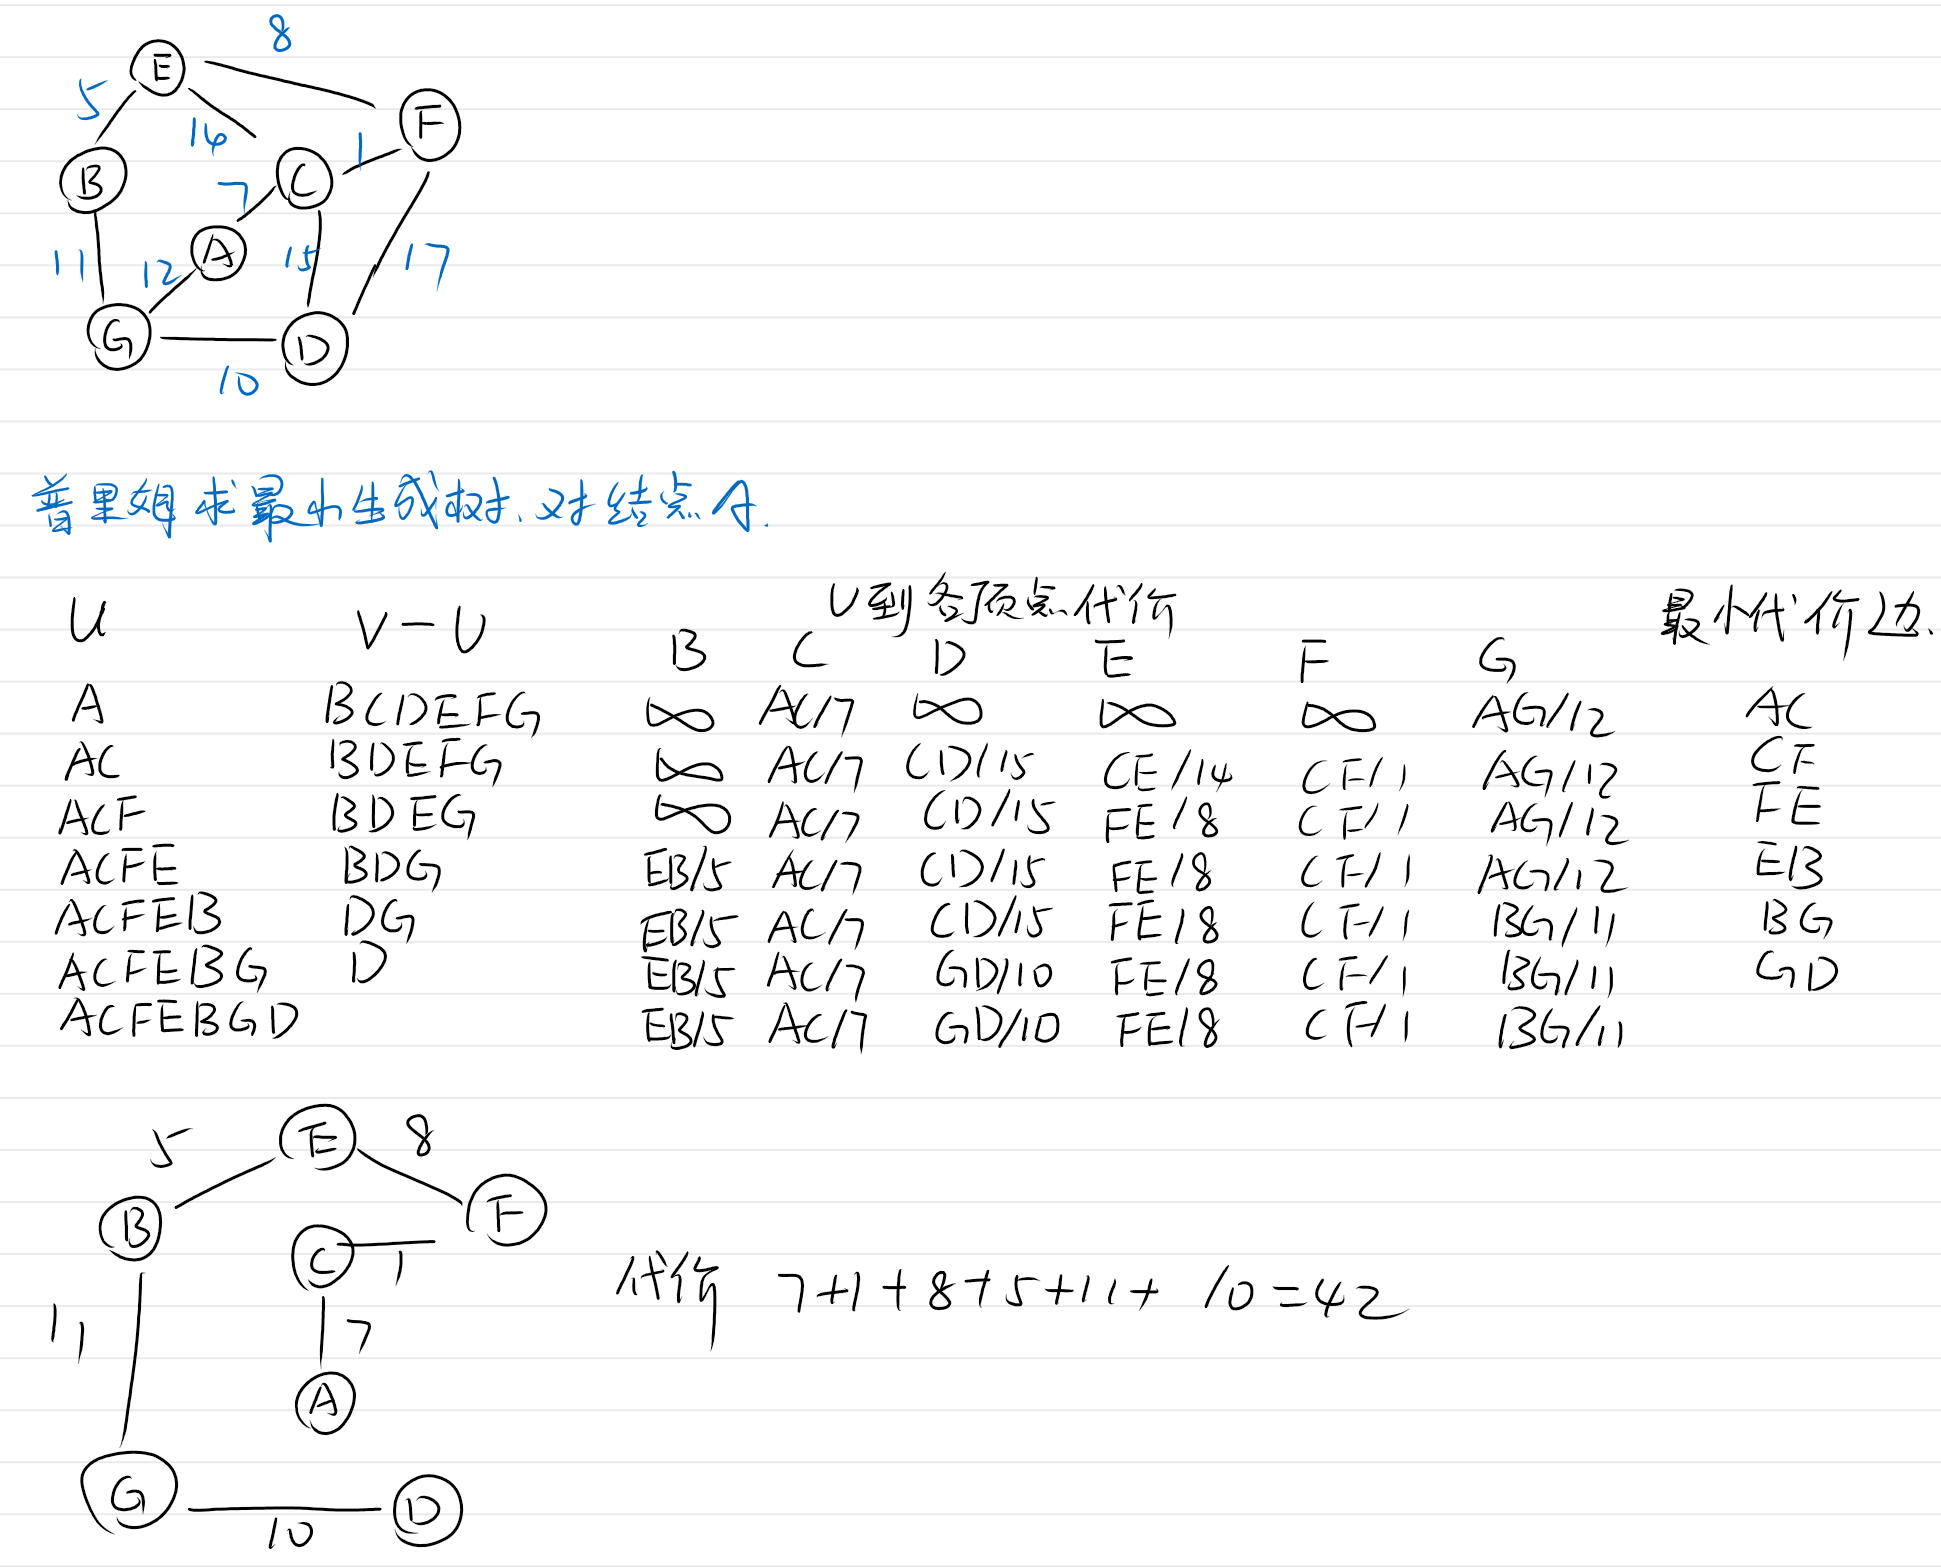 8
E
5
14
F
1
B
C
7
A
11
12
15
17
G
D
10
普里姆求最小生成树.对结点A.
U V-U U到各顶点代价 最小代价边.
B C D E F G
A BCDEFG ∞ AC/7 ∞ ∞ ∞ AG/12 AC
AC BDEFG ∞ AC/7 CD/15 CE/14 CF/1 AG/12 CF
ACF BDEG ∞ AC/7 CD/15 FE/8 CF/1 AG/12 FE
ACFE BDG EB/5 AC/7 CD/15 FE/8 CF/1 AG/12 EB
ACFEB DG EB/5 AC/7 CD/15 FE/8 CF/1 BG/11 BG
ACFEBG D EB/5 AC/7 GD/10 FE/8 CF/1 BG/11 GD
ACFEBGD EB/5 AC/7 GD/10 FE/8 CF/1 BG/11
5 E 8
B F
C 1
代价 7+1+8+5+11+10=42
11 7
A
G D
10